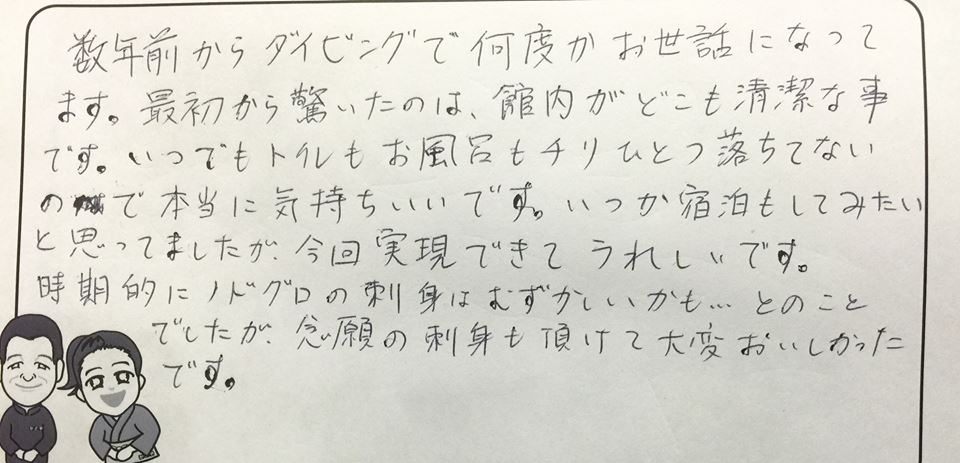 数年前からダイビングで何度かお世話になって
ます。最初から驚いたのは、館内がどこも清潔な事
です。いつでもトイレもお風呂もチリひとつ落ちてない
ので本当に気持ちいいです。いつか宿泊もしてみたい
と思ってましたが、今回実現できてうれしいです。
時期的にノドグロの刺身はむずかしいかも…とのこと
でしたが、念願の刺身も頂けて大変おいしかった
です。